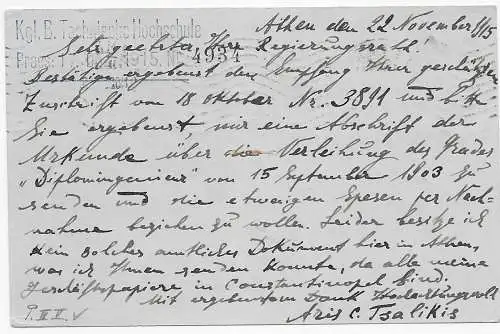 Kgl. B. Technische Hochschule
Athen den 22 November 1915
Sehr geehrter Herr Regierungsrat!
Praes. 1915. Nr. 4934
Bestätige ergebenst den Empfang Ihrer geschätzten
Zuschrift vom 18 oktober Nr. 3891 und bitte
Sie ergebenst, mir eine Abschrift der
Urkunde über die Verleihung des Grades
"Diplomingenieur" vom 15 September 1903 zu
senden und die etwaigen Spesen per Nach-
nahme beziehen zu wollen. Leider besitze ich
kein solches amtliches Dokument hier in Athen,
was ich Ihnen senden konnte, da alle meine
Geschäftspapiere in Constantinopel sind.
Mit ergebenstem Dank Hochachtungsvoll
Aris C. Tsalikis